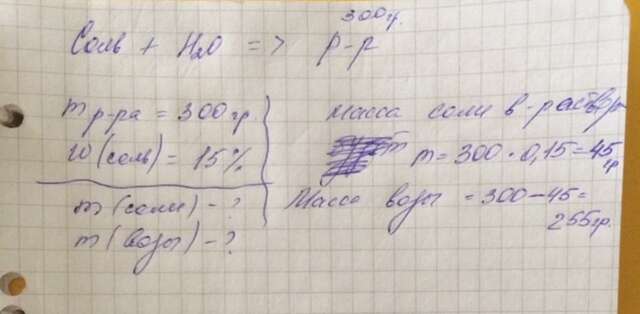 300гр.
Соль + H₂O => р-р
m р-ра = 300гр
W(соль) = 15%
m (соли) - ?
m (воды) - ?
Масса соли в растворе
m = 300 · 0,15 = 45 гр
Масса воды = 300 - 45 =
255гр.